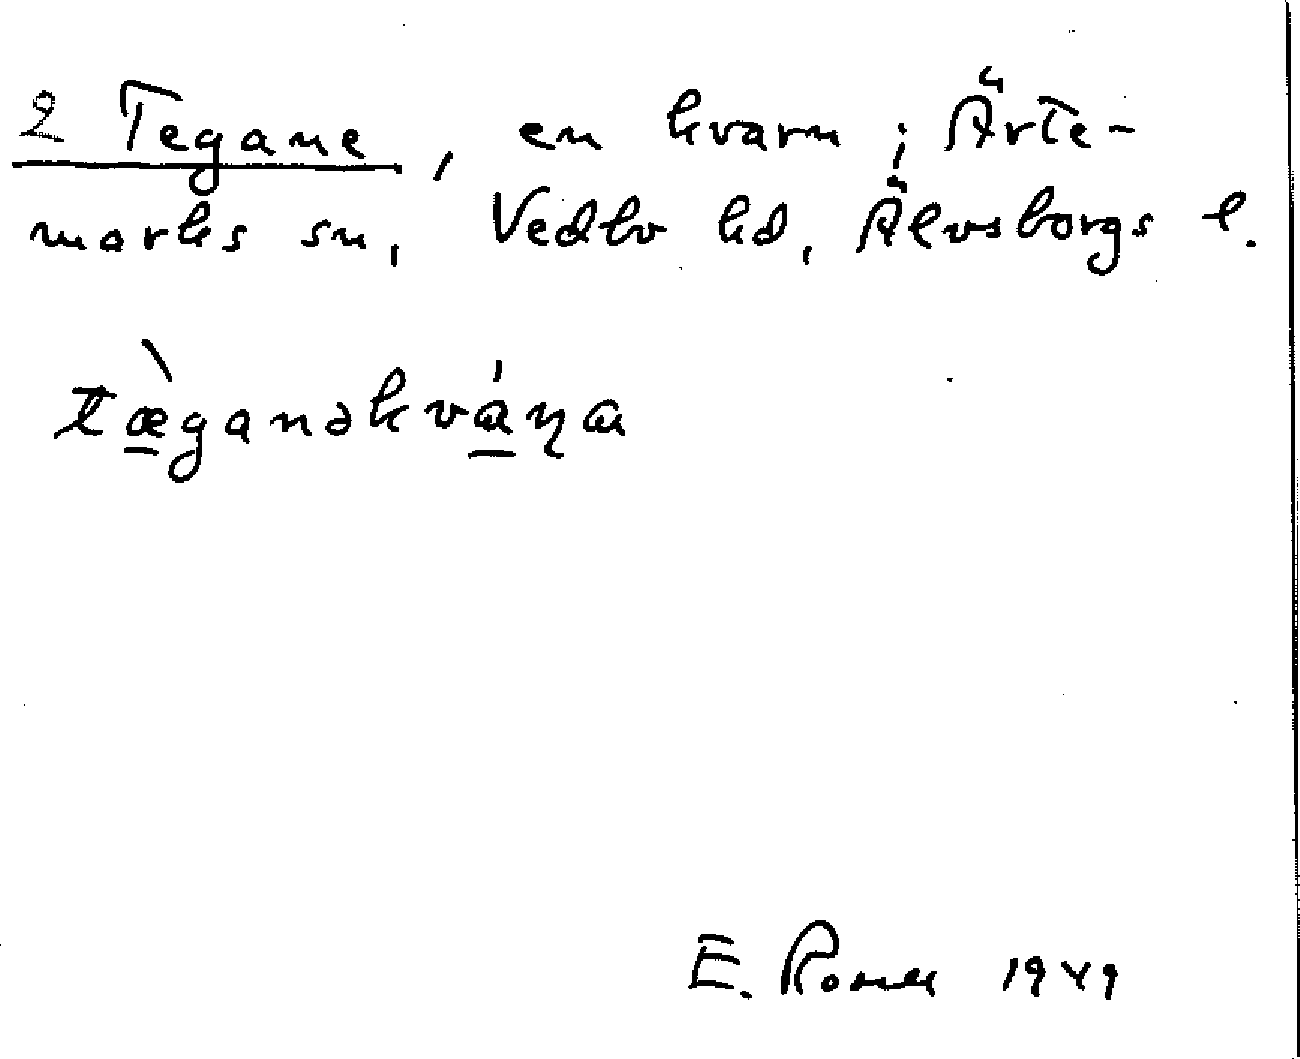 2 Tegane, en kvarn i Ärte-
marks sn, Vedbo hd, Älvsborgs l.
tæ̀ganəkváɳa
E. 1949